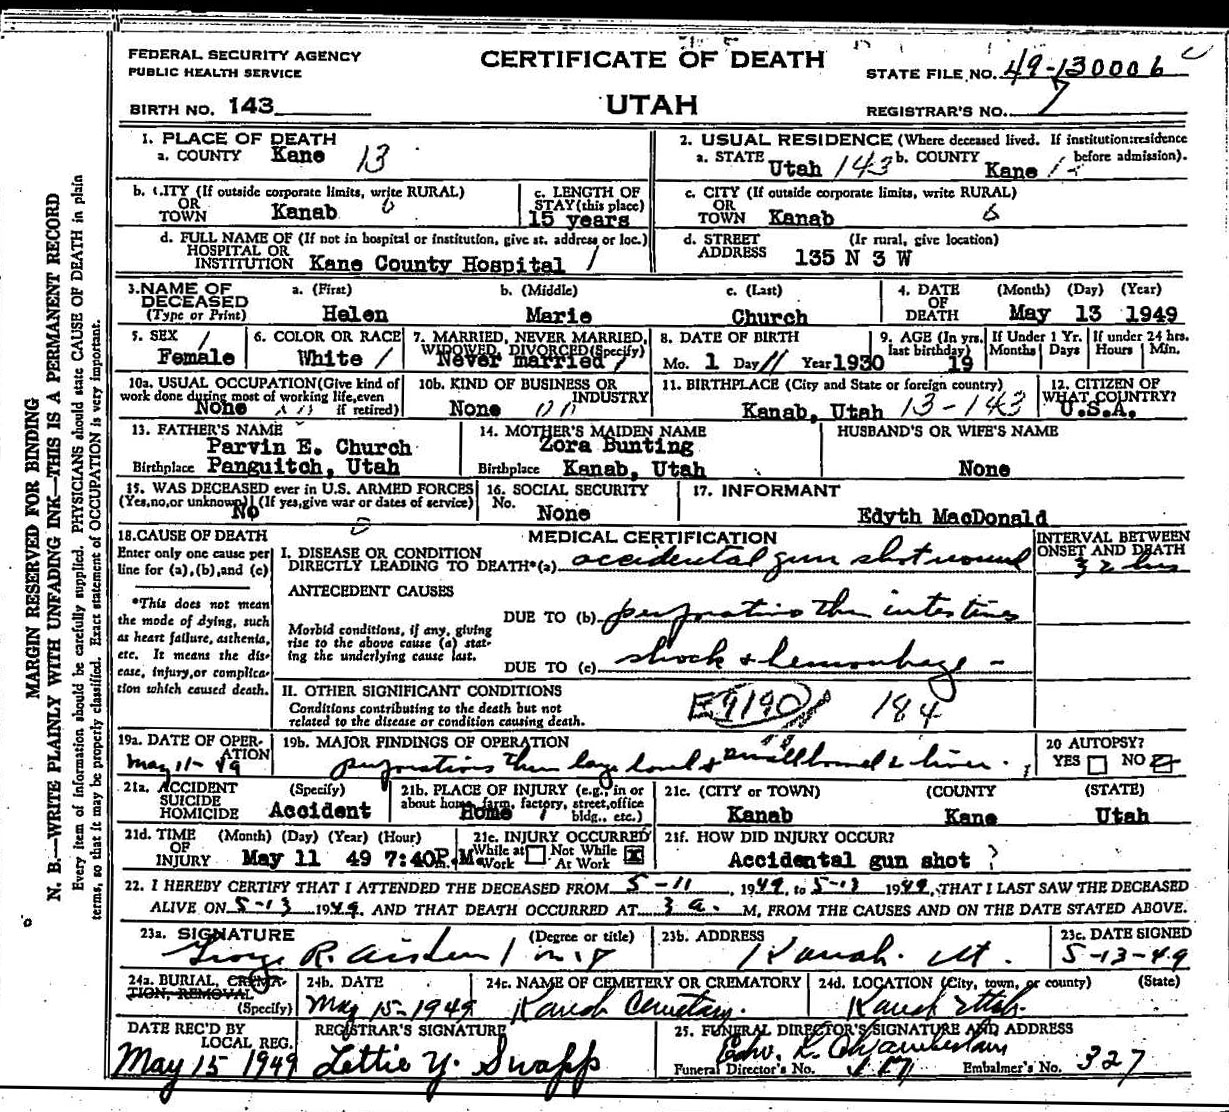 FEDERAL SECURITY AGENCY
PUBLIC HEALTH SERVICE
CERTIFICATE OF DEATH
STATE FILE NO. 49-130006
BIRTH NO. 143
UTAH
REGISTRAR'S NO. 7
1. PLACE OF DEATH
a. COUNTY Kane 13
2. USUAL RESIDENCE (Where deceased lived. If institution:residence
before admission).
a. STATE Utah 143 b. COUNTY Kane
b. CITY (If outside corporate limits, write RURAL)
OR
TOWN Kanab 6
c. LENGTH OF
STAY(this place)
15 years
c. CITY (If outside corporate limits, write RURAL)
OR
TOWN Kanab 6
d. FULL NAME OF (If not in hospital or institution, give st. address or loc.)
HOSPITAL OR
INSTITUTION Kane County Hospital 1
d. STREET (If rural, give location)
ADDRESS 135 N 3 W
3.NAME OF
DECEASED
(Type or Print)
a. (First) b. (Middle) c. (Last)
Helen Marie Church
4. DATE (Month) (Day) (Year)
OF
DEATH May 13 1949
5. SEX 1
Female
6. COLOR OR RACE
White 1
7. MARRIED, NEVER MARRIED,
WIDOWED, DIVORCED(Specify)
Never married 1
8. DATE OF BIRTH
Mo. 1 Day 11 Year 1930
9. AGE (In yrs.
last birthday)
19
If Under 1 Yr.
Months Days
If under 24 hrs.
Hours Min.
10a. USUAL OCCUPATION(Give kind of
work done during most of working life,even
if retired)
None
10b. KIND OF BUSINESS OR
INDUSTRY
None
11. BIRTHPLACE (City and State or foreign country)
Kanab, Utah 13-143
12. CITIZEN OF
WHAT COUNTRY?
U.S.A.
13. FATHER'S NAME
Parvin E. Church
Birthplace Panguitch, Utah
14. MOTHER'S MAIDEN NAME
Zora Bunting
Birthplace Kanab, Utah
HUSBAND'S OR WIFE'S NAME
None
15. WAS DECEASED ever in U.S. ARMED FORCES
(Yes,no,or unknown) (If yes,give war or dates of service)
No
16. SOCIAL SECURITY
No.
None
17. INFORMANT
Edyth MacDonald
18.CAUSE OF DEATH
Enter only one cause per
line for (a),(b),and (c)
*This does not mean
the mode of dying, such
as heart failure, asthenia,
etc. It means the dis-
ease, injury,or complica-
tion which caused death.
MEDICAL CERTIFICATION
INTERVAL BETWEEN
ONSET AND DEATH
I. DISEASE OR CONDITION
DIRECTLY LEADING TO DEATH*(a) accidental gun shot wound
32 hrs
ANTECEDENT CAUSES
DUE TO (b) perforations thru intestines
Morbid conditions, if any, giving
rise to the above cause (a) stat-
ing the underlying cause last.
DUE TO (c) shock & hemorrhage -
II. OTHER SIGNIFICANT CONDITIONS
Conditions contributing to the death but not
related to the disease or condition causing death.
E9190 184
19a. DATE OF OPER-
ATION
May 11-49
19b. MAJOR FINDINGS OF OPERATION
perforations thru large bowel & small bowel & liver.
20 AUTOPSY?
YES NO
21a. ACCIDENT (Specify)
SUICIDE
HOMICIDE Accident
21b. PLACE OF INJURY (e.g., in or
about home, farm, factory, street,office
bldg., etc.)
Home
21c. (CITY or TOWN) (COUNTY (STATE)
Kanab Kane Utah
21d. TIME (Month) (Day) (Year) (Hour)
OF
INJURY May 11 49 7:40P.M.
21e. INJURY OCCURRED
While at Work Not While At Work X
21f. HOW DID INJURY OCCUR?
Accidental gun shot ?
22. I HEREBY CERTIFY THAT I ATTENDED THE DECEASED FROM 5-11, 1949, to 5-13 1949, THAT I LAST SAW THE DECEASED
ALIVE ON 5-13 1949, AND THAT DEATH OCCURRED AT 3 a. M, FROM THE CAUSES AND ON THE DATE STATED ABOVE.
23a. SIGNATURE (Degree or title)
George R. Aiken MD
23b. ADDRESS
Kanab. Ut.
23c. DATE SIGNED
5-13-49
24a. BURIAL, CREMA-
TION, REMOVAL
(Specify)
24b. DATE
May 15-1949
24c. NAME OF CEMETERY OR CREMATORY
Kanab Cemetary.
24d. LOCATION (City, town, or county) (State)
Kanab Utah.
DATE REC'D BY
LOCAL REG.
May 15 1949
REGISTRAR'S SIGNATURE
Lettie Y. Swapp
25. FUNERAL DIRECTOR'S SIGNATURE AND ADDRESS
Edw. L. Chamberlain
Funeral Director's No. Embalmer's No. 327
MARGIN RESERVED FOR BINDING
N. B.—WRITE PLAINLY WITH UNFADING INK—THIS IS A PERMANENT RECORD
Every item of Information should be carefully supplied. PHYSICIANS should state CAUSE OF DEATH in plain
terms, so that it may be properly classified. Exact statement of OCCUPATION is very important.